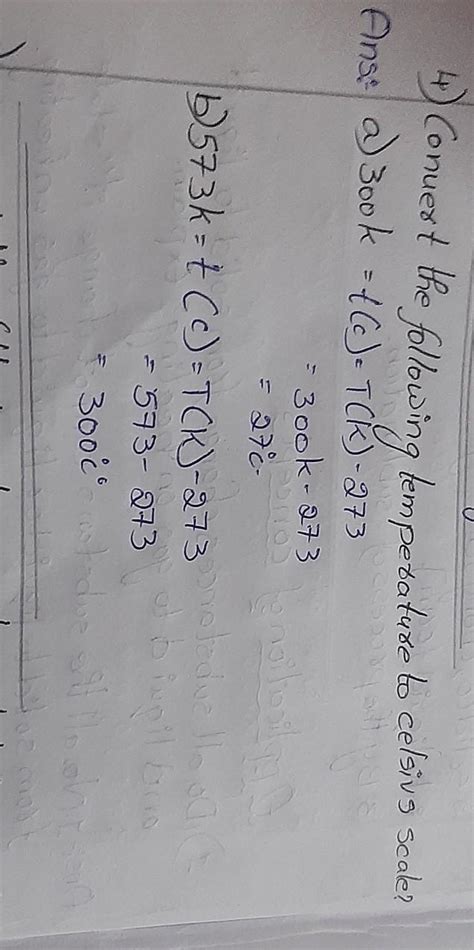 4) Convert the following temperature to celsius scale?
Ans: a) 300k = t(c) = T(K) - 273
= 300k - 273
= 27°c.
b) 573k = t(c) = T(K) - 273
= 573 - 273
= 300°c